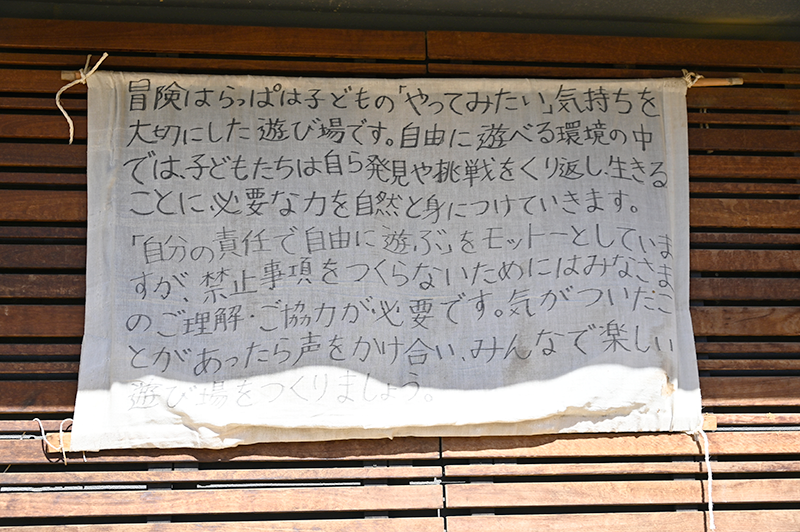 冒険はらっぱは子どもの「やってみたい」気持ちを
大切にした遊び場です。自由に遊べる環境の中
では、子どもたちは自ら発見や挑戦をくり返し、生きる
ことに必要な力を自然と身につけていきます。
「自分の責任で自由に遊ぶ」をモットーとしていま
すが、禁止事項をつくらないためにはみなさま
のご理解・ご協力が必要です。気がついたこ
とがあったら声をかけ合い、みんなで楽しい
遊び場をつくりましょう。